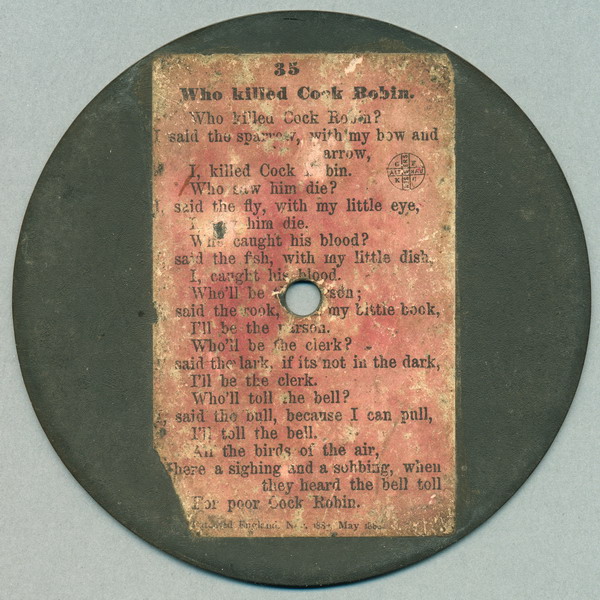 35
Who killed Cock Robin.
Who killed Cock Robin?
I said the sparrow, with my bow and
arrow,
I, killed Cock Robin.
Who saw him die?
I, said the fly, with my little eye,
I him die.
Who caught his blood?
said the fish, with my little dish,
I, caught his blood.
Who'll be
said the rook, my little book,
I'll be the parson.
Who'll be the clerk?
said the lark, if its not in the dark,
I'll be the clerk.
Who'll toll the bell?
said the bull, because I can pull,
I'll toll the bell.
All the birds of the air,
a sighing and a sobbing, when
they heard the bell toll
For poor Cock Robin.
England, May